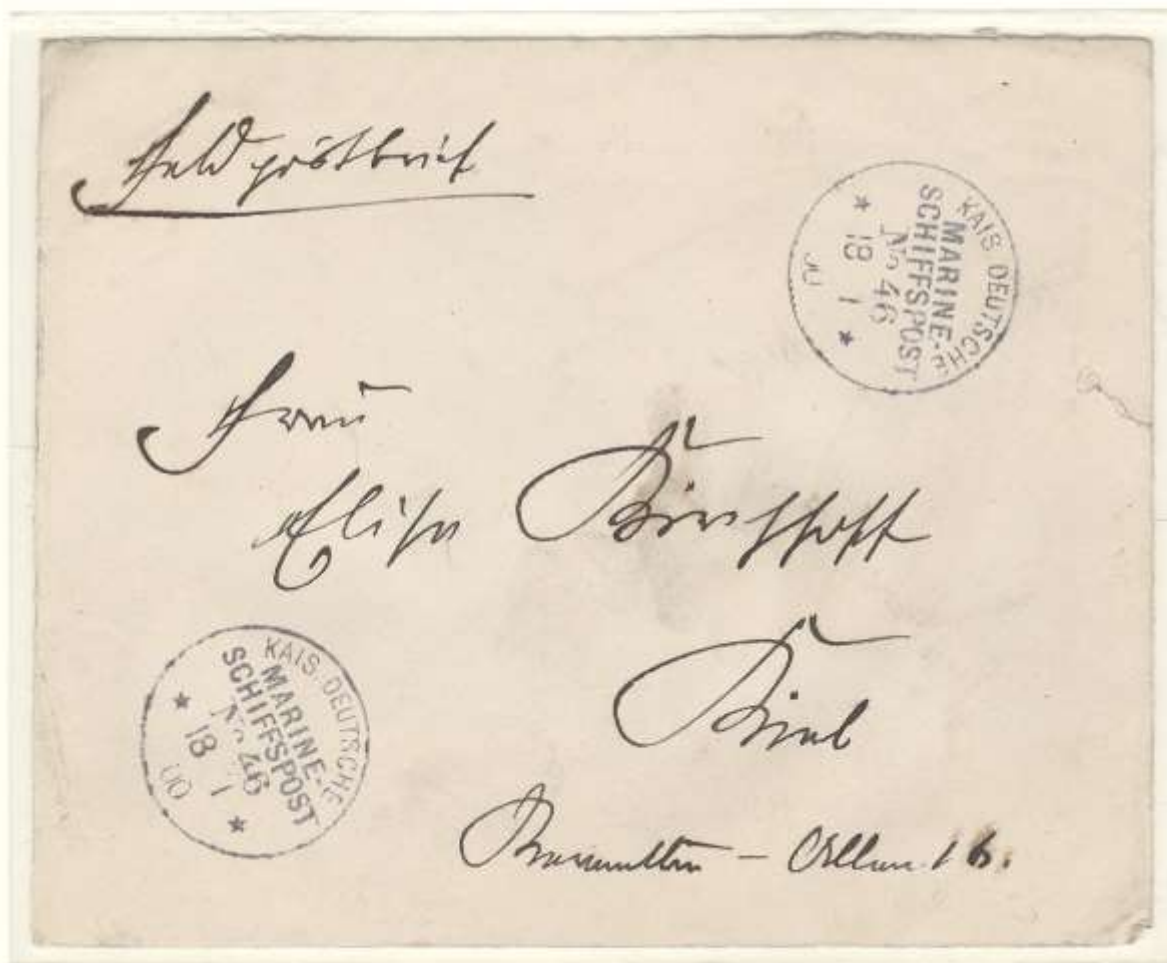 Feldpostbrief
KAIS. DEUTSCHE
MARINE-
SCHIFFSPOST
No 46
* 18 1 *
00
Frau
Elise Kirchhoff
Kiel
– Allee 16.
KAIS. DEUTSCHE
MARINE-
SCHIFFSPOST
No 46
* 18 1 *
00